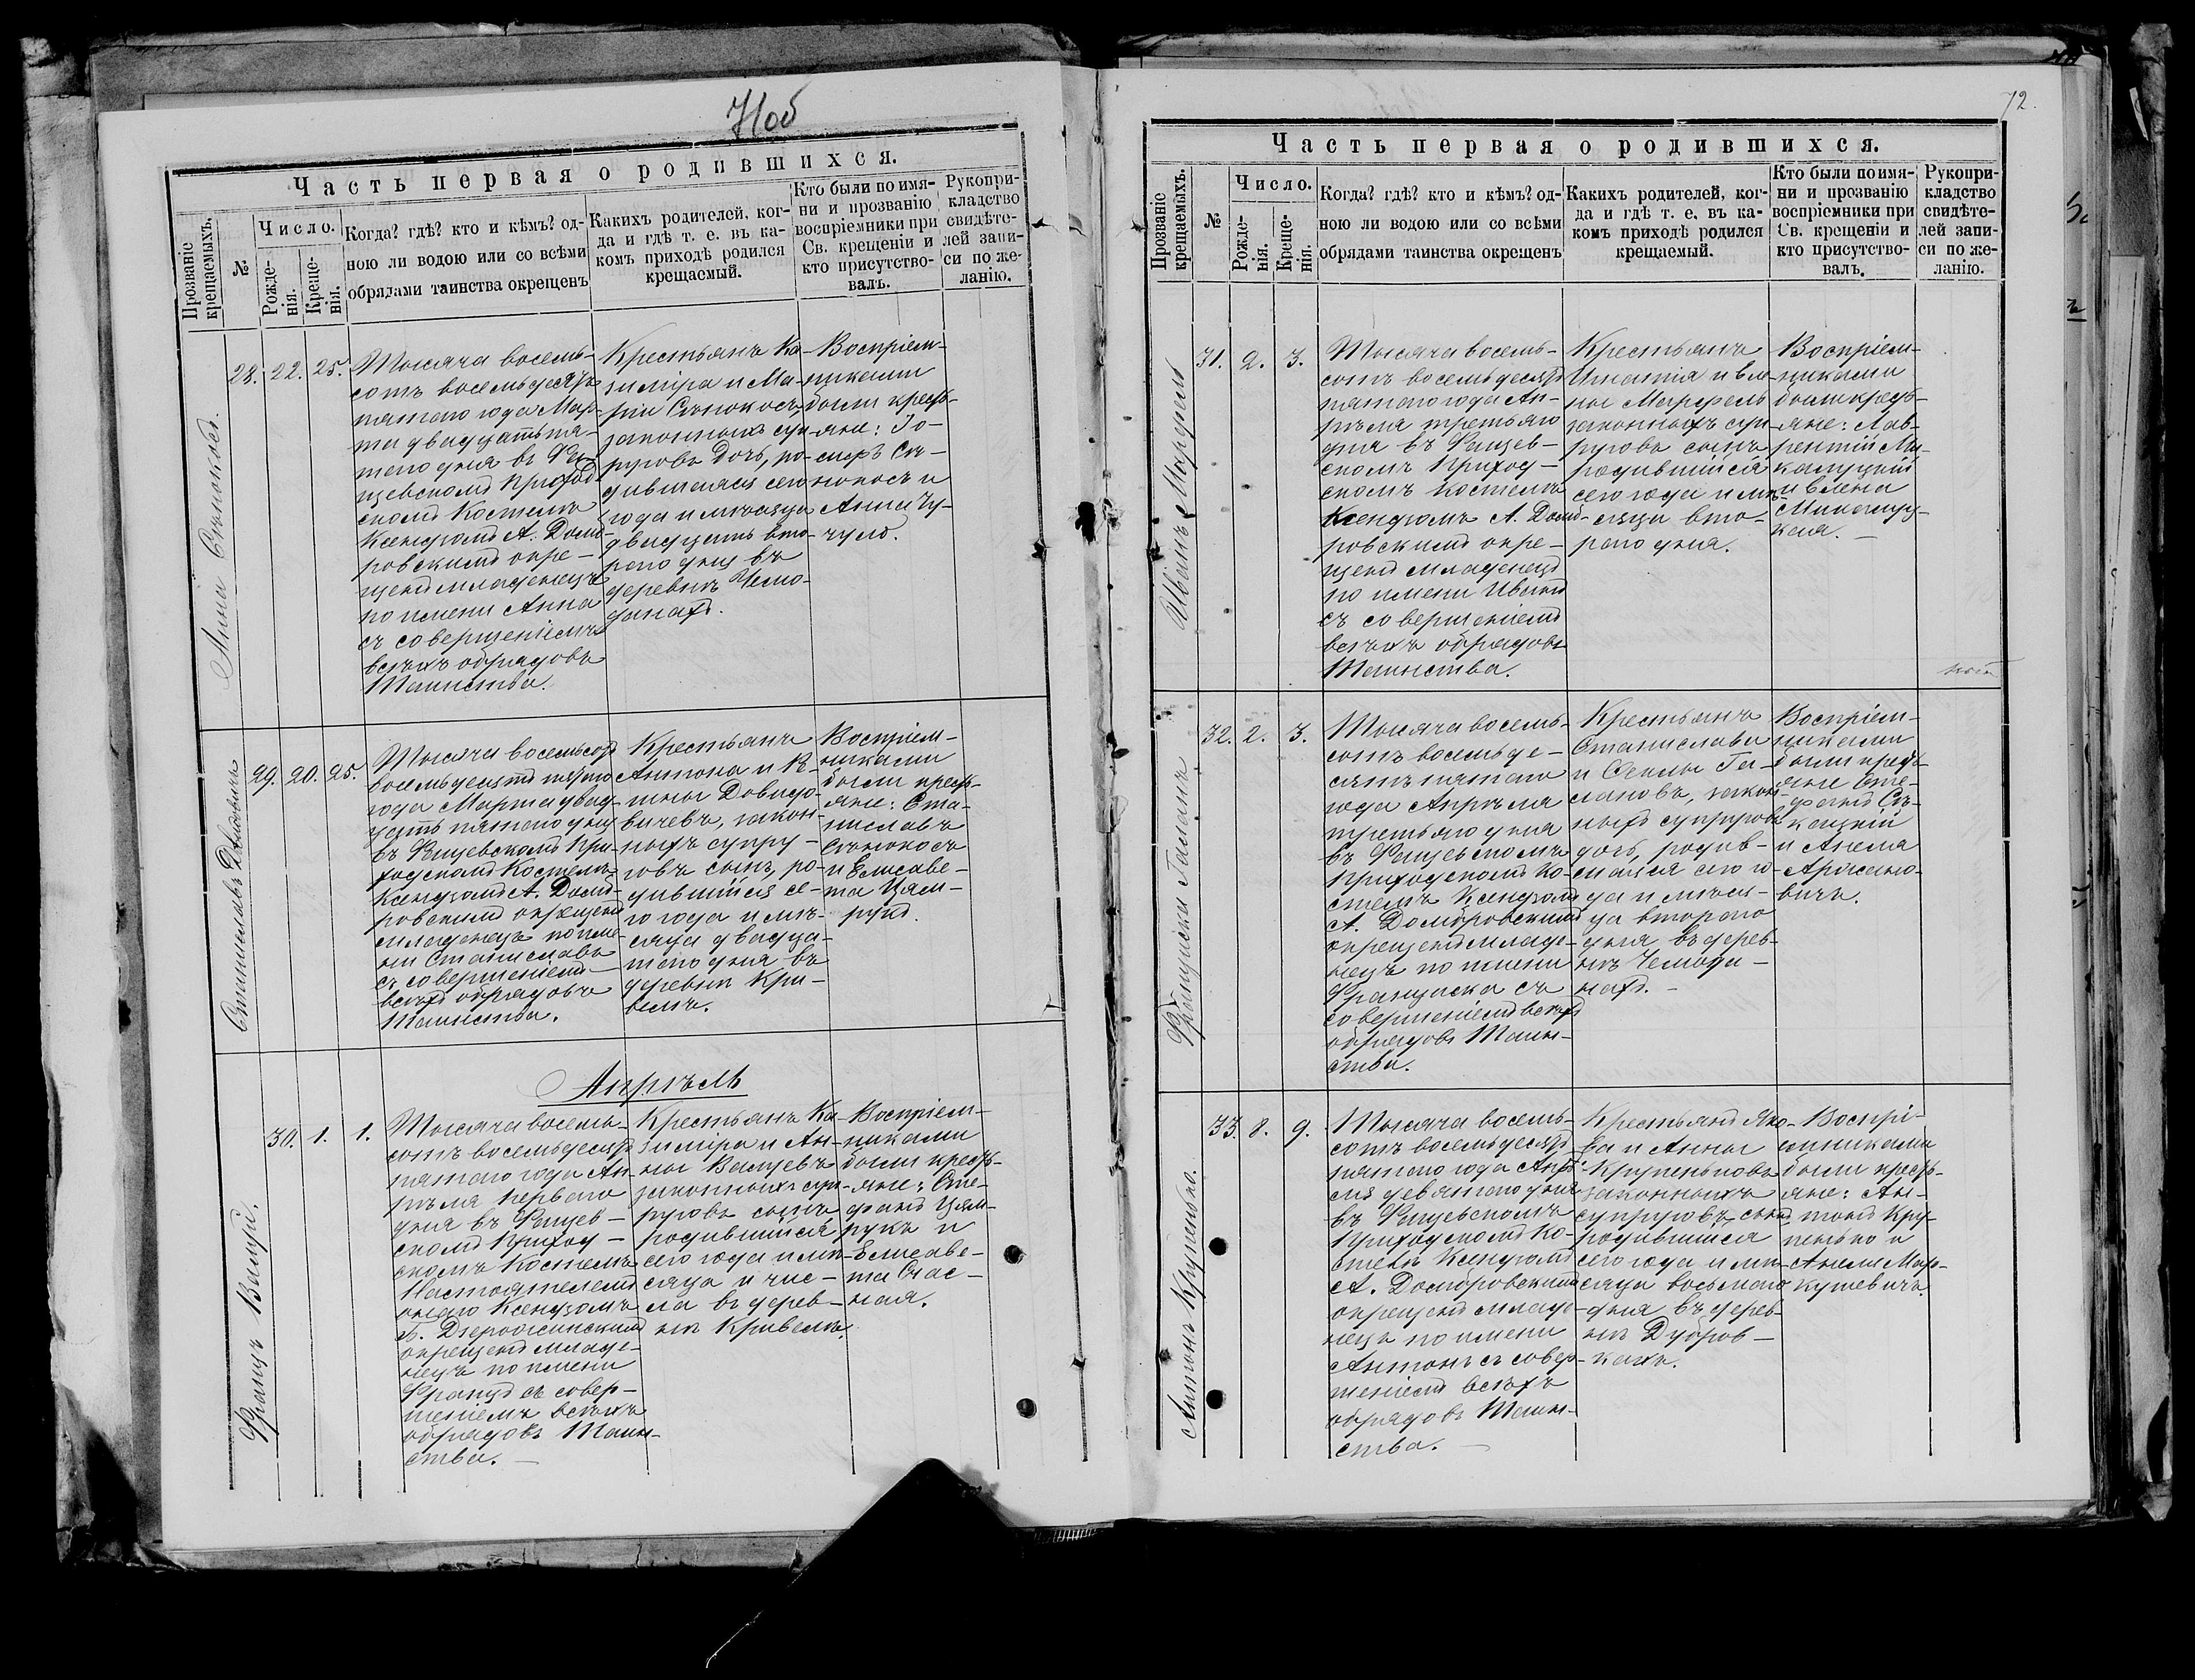 71об
Часть первая о родившихся.
Прозваніе крещаемыхъ.
№
Число.
Рожденія.
Крещенія.
Когда? гдѣ? кто и кѣмъ? од-
ною ли водою или со всѣми
обрядами таинства окрещенъ
Какихъ родителей, ког-
да и гдѣ т. е. въ ка-
комъ приходѣ родился
крещаемый.
Кто были по имя-
ни и прозванію
воспріемники при
Св. крещеніи и
кто присутство-
валъ.
Рукопри-
кладство
свидѣте-
лей запи-
си по же-
ланію.
Анна Сѣнокосъ.
28. 22. 25.
Тысяча восемь-
сотъ восемьдесятъ
пятаго года Мар-
та двадцать пя-
таго дня въ
Приход-
скомъ Костелѣ
Ксендзомъ А. Домб-
ровскимъ окре-
щенъ младенецъ
по имени Анна
съ совершеніемъ
всѣхъ обрядовъ
Таинства.
Крестьянъ Ка-
зиміра и Ма-
ріи Сѣнокосъ,
законныхъ суп-
руговъ дочь, ро-
дившаяся сего
года и мѣсяца
двадцать вто-
раго дня въ
деревнѣ Чемо-
данахъ.
Воспріем-
никами
были кресть-
яне: Іо-
сифъ Сѣ-
нокосъ и
Анна Чу-
чуло.
Станиславъ Довидовичъ
29. 20. 25.
Тысяча восемьсотъ
восемьдесятъ пятаго
года Марта двад-
цать пятаго дня
въ Фащевскомъ При-
ходскомъ Костелѣ
Ксендзомъ А. Домб-
ровскимъ окрещенъ
младенецъ по име-
ни Станиславъ
съ совершеніемъ
всѣхъ обрядовъ
Таинства.
Крестьянъ
Антона и
Довидо-
вичевъ, закон-
ныхъ супру-
говъ сынъ, ро-
дившійся се-
го года и мѣ-
сяца двадца-
таго дня въ
деревнѣ Кри-
велѣ.
Воспріем-
никами
были кресть-
яне: Ста-
ниславъ
Сѣнокосъ
и Елисаве-
та Цям-
рукъ.
Апрѣль
Францъ Ванцъ.
30. 1. 1.
Тысяча восемь-
сотъ восемьдесятъ
пятаго года Ап-
рѣля перваго
дня въ Фащев-
скомъ Приход-
скомъ Костелѣ
Настоятелемъ
онаго Ксендзомъ
Б. Дзеропинскимъ
окрещенъ младе-
нецъ по имени
Францъ съ совер-
шеніемъ всѣхъ
обрядовъ Таин-
ства.
Крестьянъ Ка-
зиміра и Ан-
ны Ванцевъ
законныхъ суп-
руговъ сынъ
родившійся
сего года и мѣ-
сяца и чис-
ла въ дерев-
нѣ Кривелѣ.
Воспріем-
никами
были кресть-
яне: Сте-
фанъ Цям-
рукъ и
Елисаве-
та Счас-
ная.
72.
Часть первая о родившихся.
Прозваніе крещаемыхъ.
№
Число.
Рожденія.
Крещенія.
Когда? гдѣ? кто и кѣмъ? од-
ною ли водою или со всѣми
обрядами таинства окрещенъ
Какихъ родителей, ког-
да и гдѣ т. е. въ ка-
комъ приходѣ родился
крещаемый.
Кто были по имя-
ни и прозванію
воспріемники при
Св. крещеніи и
кто присутство-
валъ.
Рукопри-
кладство
свидѣте-
лей запи-
си по же-
ланію.
Иванъ Марфель
31. 2. 3.
Тысяча восемь-
сотъ восемьдесятъ
пятаго года Ап-
рѣля третьяго
дня въ Фащев-
скомъ Приход-
скомъ Костелѣ
Ксендзомъ А. Домб-
ровскимъ окре-
щенъ младенецъ
по имени Иванъ
съ совершеніемъ
всѣхъ обрядовъ
Таинства.
Крестьянъ
Игнатія и Еле-
ны Марфель
законныхъ суп-
руговъ сынъ
родившійся
сего года и мѣ-
сяца вто-
раго дня.
Воспріем-
никами
были кресть-
яне: Лав-
рентій Ми-
калуцкій
и Елена
Микалуц-
кая.
Франциска Галанъ
32. 2. 3.
Тысяча восемь-
сотъ восемьде-
сятъ пятаго
года Апрѣля
третьяго дня
въ Фащевскомъ
Приходскомъ Ко-
стелѣ Ксендзомъ
А. Домбровскимъ
окрещенъ младе-
нецъ по имени
Франциска съ
совершеніемъ всѣхъ
обрядовъ Таин-
ства.
Крестьянъ
Станислава
и Теклы Га-
лановъ, закон-
ныхъ супруговъ
дочь, родив-
шаяся сего го-
да и мѣся-
ца второго
дня въ дерев-
нѣ Чемода-
нахъ.
Воспріем-
никами
были кресть-
яне Сте-
фанъ Сѣ-
кацкій
и Анеля
вичъ.
Антонъ Крупенько.
33. 8. 9.
Тысяча восемь-
сотъ восемьдесятъ
пятаго года Апрѣ-
ля девятаго дня
въ Фащевскомъ
Приходскомъ Ко-
стелѣ Ксендзомъ
А. Домбровскимъ
окрещенъ младе-
нецъ по имени
Антонъ съ совер-
шеніемъ всѣхъ
обрядовъ Таин-
ства.
Крестьянъ Яко-
ва и Анны
Крупеньковъ
законныхъ
супруговъ сынъ,
родившійся
сего года и мѣ-
сяца восьмаго
дня въ дерев-
нѣ Дубров-
кахъ.
Воспріе-
мниками
были кресть-
яне: Ан-
тонъ Кру-
пенько и
Анеля Мар-
кушевичъ.